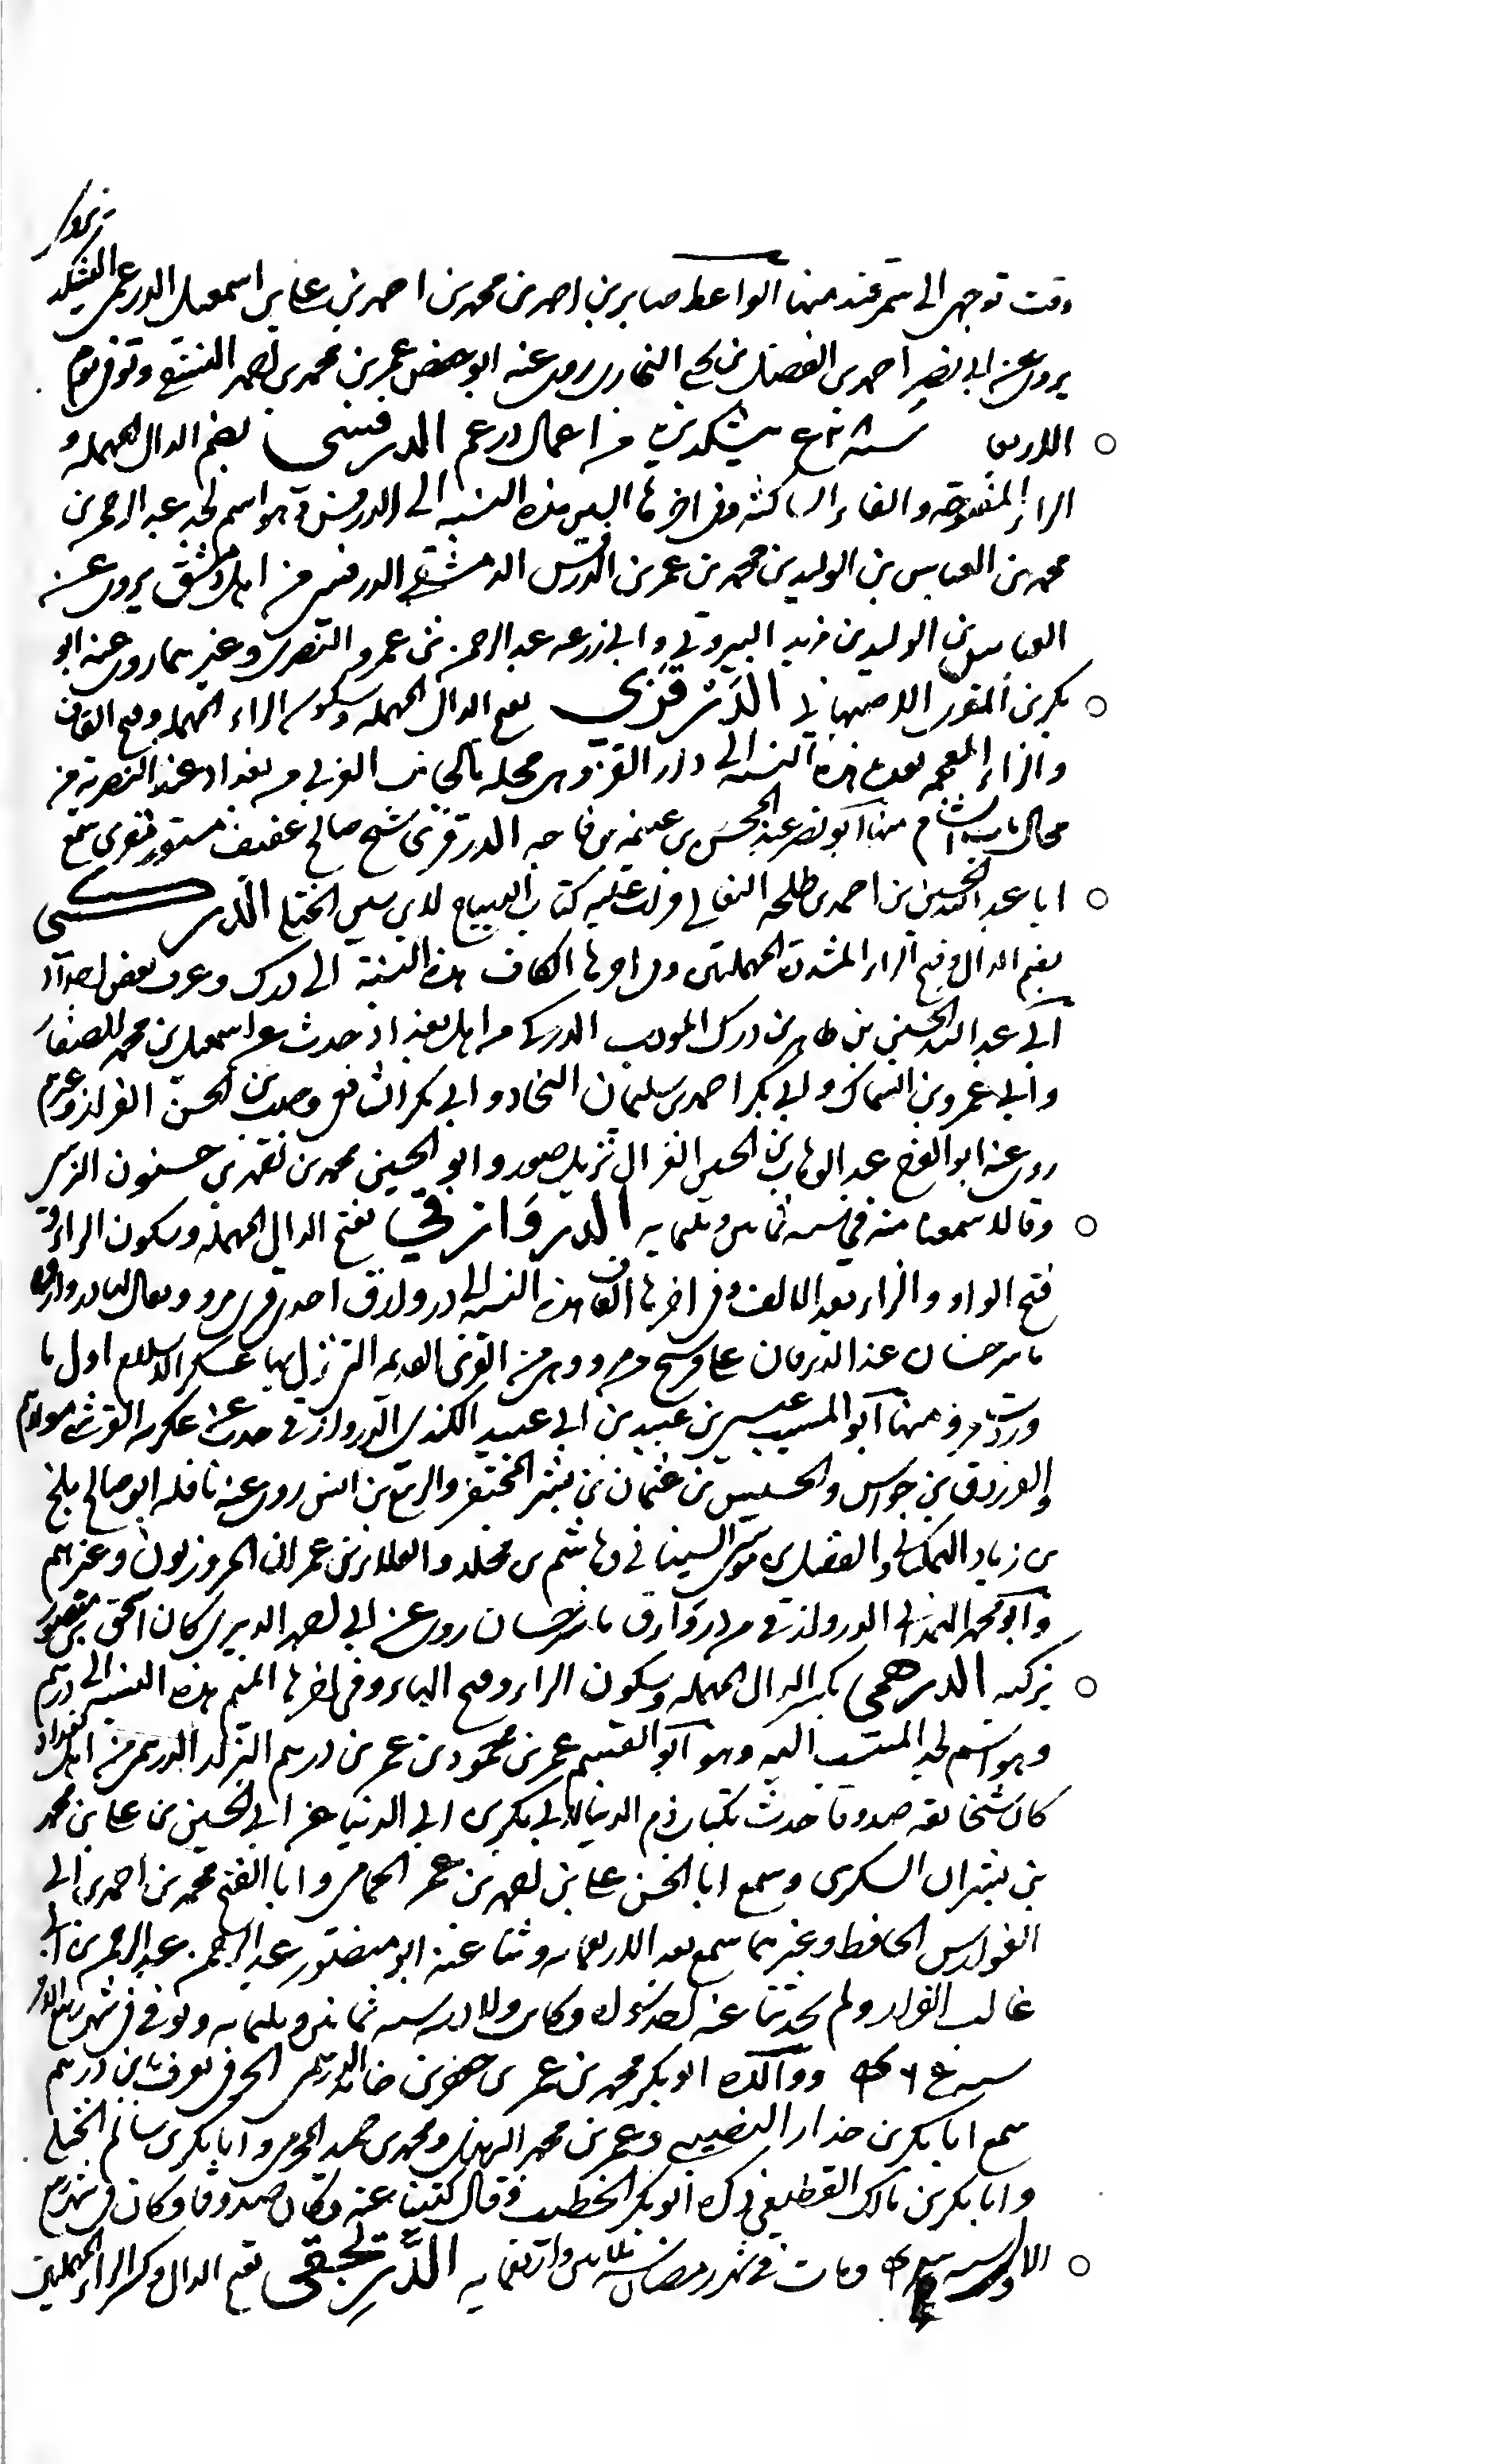 وقت توجهى الى سمرقند منها الواعظ صابر بن احمد بن محمد بن احمد بن على بن اسمعيل الدرغمى
يروى عن ابى نصر احمد بن الفضل بن يحيى البخارى روى عنه ابو حفص عمر بن محمد بن احمد النسفى وتوفى يوم
الاربعا سنة من اعمال درغم الدرفسى بضم الدال المهملة و
الراء المفتوحة والفاء الساكنة وفى اخرها السين هذه النسبة الى الدرفس وهو اسم لجد عبد الرحمن بن
محمد بن العباس بن الوليد بن محمد بن عمر بن الدرفس الدمشقى الدرفسى من اهل دمشق يروى عن
العباس بن الوليد بن مزيد البيروتى وابى زرعه عبد الرحمن بن عمرو النصرى وغيرهما روى عنه ابو
بكر بن المقرى الاصبهانى الدرقزى بفتح الدال المهملة وسكون الراء المهملة وفتح القاف
والزاء المعجمه بعدها هذه النسبه الى دار القز وهى محله بالجانب الغربى من بغداد عند النصرية من
محال باب الشام منها ابو نصر عبد المحسن بن غنيمه بن فاحه الدرقزى شيخ صالح عفيف مستور مقرى سمع
ابا عبد الله الحسين بن احمد بن طلحه النعالى قرات عليه كتاب الدركى
بضم الدال وفتح الراء المشددة المهملتين وفى اخرها الكاف هذه النسبة الى درك وعرف بعض اجداد
ابى عبد الله الحسين بن طاهر بن درك المودب الدركى من اهل بغداد حدث عن اسمعيل بن محمد الصفار
وابى عمرو بن السماك وابى بكر احمد بن سليمان النجاد وابى بكر الشافعى وحبيب بن الحسن القزاز وغيرهم
روى عنه ابو الفرج عبد الوهاب بن الحسين الغزال نزيل صور وابو الحسين محمد بن احمد بن حسنون النرسى
وقالا سمعنا منه فى سنه ثمانين وثلثمايه الدروازقى بفتح الدال المهملة وسكون الراء و
فتح الواو والزاء بعد الالف وفى اخرها القاف هذه النسبه الى دروازق احدى قرى مرو ويقال لها دروازه
ماسرخسان عند الديوقان على فرسخ من مرو وهى من القرى القديمه التى نزل بها عسكر الاسلام اول ما
وردت مرو منها ابو المسيب عيسى بن عبيد بن ابى عبيد الكندى الدروازقى حدث عن عكرمه القرشى مولاهم
والفرزدق بن جواس والحسين بن عثمان بن بشر المحتفز والربيع بن انس روى عنه نافله ابو صالح بلج
بن زياد النمكبانى والفضل بن موسى السينانى وهاشم بن مخلد والعلاء بن عمران المروزيون وغيرهم
وابو محمد الدروازقى من دروازق ماسرخسان روى عن ابى احمد الزبيرى كان اسحق بن منصور
يزكيه الدرهمى بكسر الدال المهمله وسكون الراء وفتح الهاء وفى اخرها الميم هذه النسبه الى درهم
وهو اسم لجد المنتسب اليه وهو ابو القسم عمر بن محمود بن عمر بن درهم البزاز الدرهمى من اهل بغداد
كان شيخا ثقه صدوقا حدث بكتاب ذم الدنيا لابى بكر بن ابى الدنيا عن ابى الحسين بن على بن محمد
بن بشران السكرى وسمع ابا الحسن على بن احمد بن عمر الحمامى وابا الفتح محمد بن احمد بن ابى
الفوارس الحافظ وغيرهما سمع بعد الاربعمايه وثنا عنه ابو منصور عبد الرحمن بن ابى
غالب القزاز ولم يحدثنا عنه احد سواه وكانت ولادته سنه ثمانين وثلثمايه وتوفى فى شهر ربيع الاول
سنه ووالده ابو بكر محمد بن عمر بن جعفر بن خالد الدرهمى الخرقى يعرف بابن درهم
سمع ابا بكر بن خلاد النصيبى وعمر بن محمد ومحمد بن حميد المخرمى وابا بكر بن سالم الختلى
وابا بكر بن مالك القطيعى ذكره ابو بكر الخطيب وقال كتبنا عنه وكان صدوقا وكان
ومات فى شهر رمضان سنه ثلاثين واربعمايه الدريجقى بفتح الدال وكسر الراء المهملتين